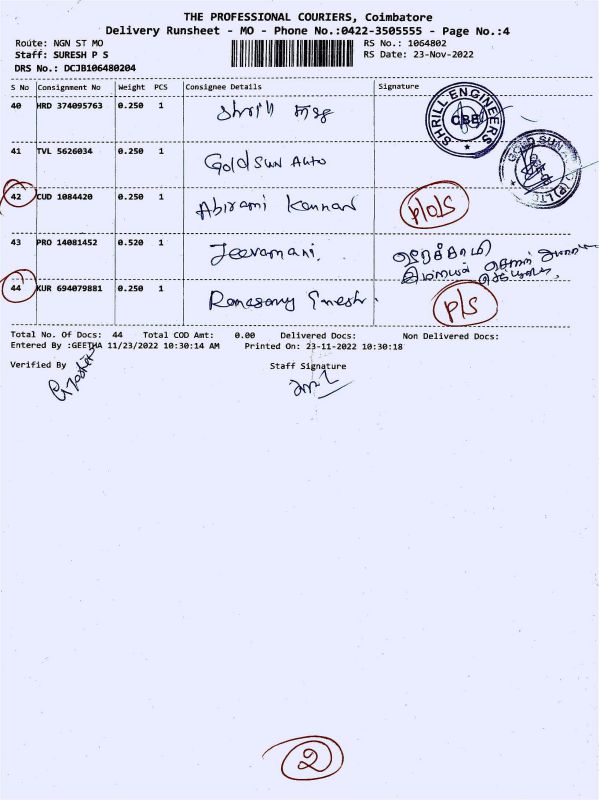 THE PROFESSIONAL COURIERS, Coimbatore
Delivery Runsheet - MO - Phone No.:0422-3505555 - Page No.:4
Route: NGN ST MO RS No.: 1064802
Staff: SURESH P S RS Date: 23-Nov-2022
DRS No.: DCJB106480204
S No Consignment No Weight PCS Consignee Details Signature
40 HRD 374095763 0.250 1 Shrill SHRILL ENGINEERS CBE
41 TVL 5626034 0.250 1 Goldsun Auto GOLD SUN (P) LTD
42 CUD 1084420 0.250 1 Abirami Kannan
43 PRO 14081452 0.520 1 Jeevamani.
44 KUR 694079881 0.250 1 Ramasamy p/s
Total No. Of Docs: 44 Total COD Amt: 0.00 Delivered Docs: Non Delivered Docs:
Entered By :GEETHA 11/23/2022 10:30:14 AM Printed On: 23-11-2022 10:30:18
Verified By Staff Signature
2